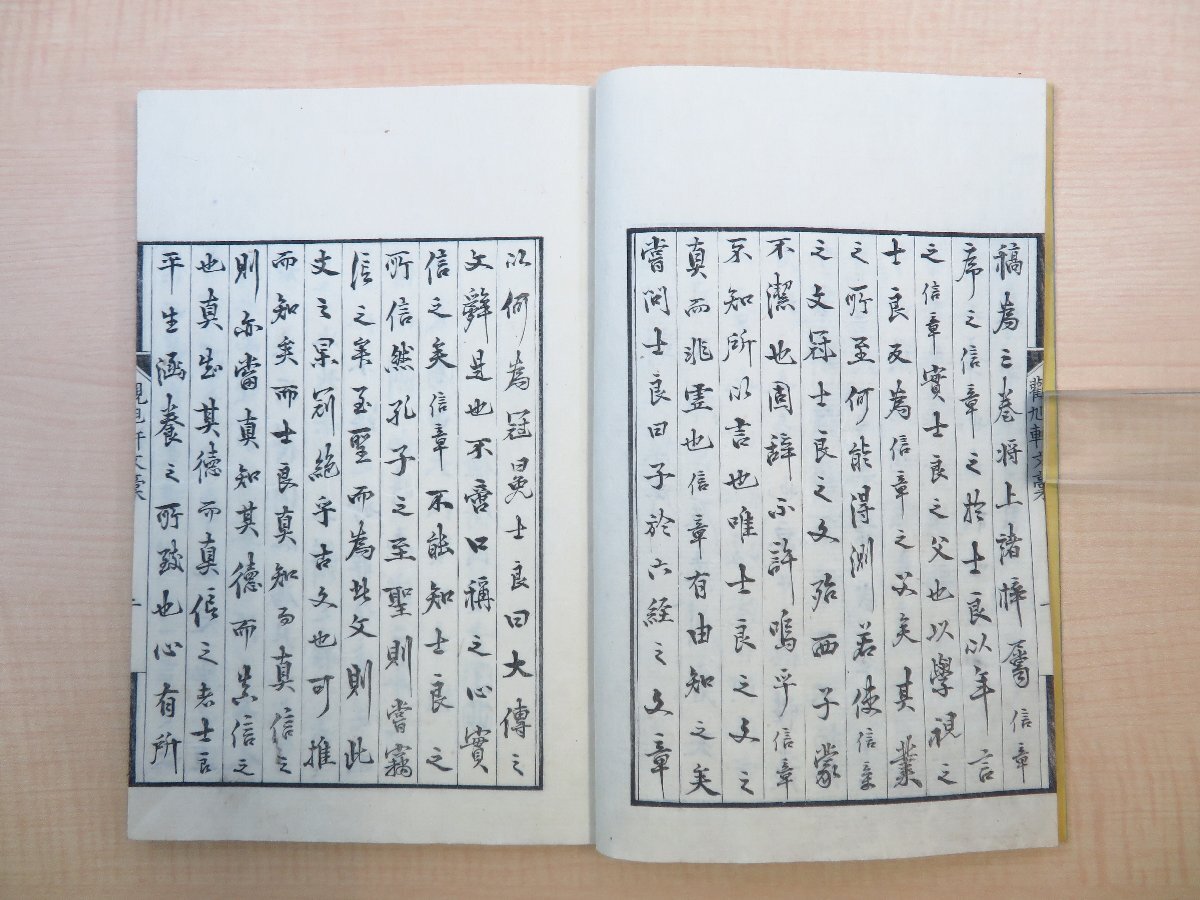 稿為三卷將上諸梓屬信章
序之信章之於士良以年言
之信章實士良之父也以學視之
士良反為信章之父矣其業
之所至何能得測若使信章
之文冠士良之文殆西子蒙
不潔也固辞不許嗚乎信章
不知所以言也唯士良之文之
真而非霊也信章有由知之矣
嘗問士良曰子於六経之文章
觀旭軒文稾
一
以何為冠冕士良曰大傳之
文辭是也不啻口稱之心實
信之矣信章不能知士良之
所信然孔子之至聖則嘗竊
信之矣至聖而為此文則此
文之冠絶乎古文也可推
而知矣而士良真知而真信之
則亦當真知其德而真信之
也真知其德而真信之者士良
平生涵養之所致也心有所
觀旭軒文稾
二